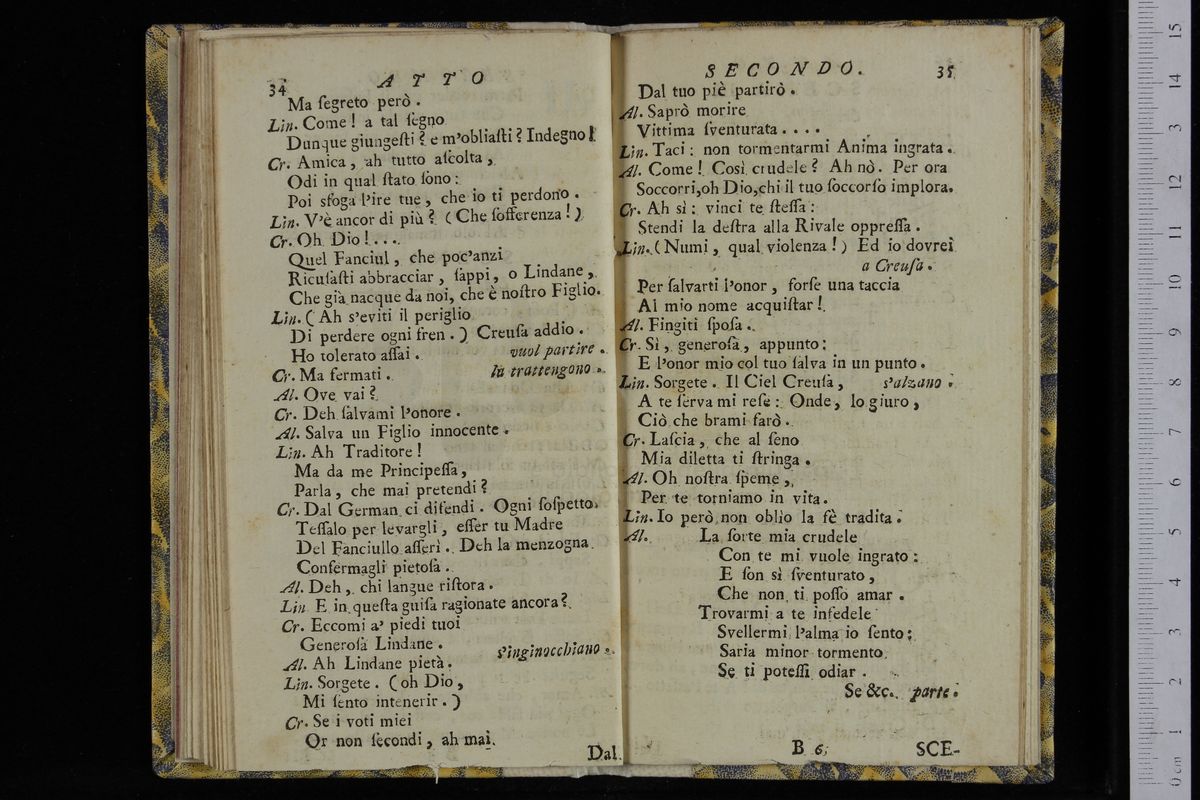 34 ATTO
Ma ſegreto però.
Lin. Come! a tal ſegno
Dunque giungeſti? e m'obliaſti? Indegno!
Cr. Amica, ah tutto aſcolta,
Odi in qual ſtato ſono:
Poi sfoga l'ire tue, che io ti perdono.
Lin. V'è ancor di più? (Che ſofferenza!)
Cr. Oh Dio!....
Quel Fanciul, che poc'anzi
Ricuſaſti abbracciar, ſappi, o Lindane,
Che già nacque da noi, che è noſtro Figlio.
Lin. (Ah s'eviti il periglio
Di perdere ogni fren.) Creuſa addio.
Ho tolerato aſſai. vuol partire.
Cr. Ma fermati. la trattengono.
Al. Ove vai?
Cr. Deh ſalvami l'onore.
Al. Salva un Figlio innocente.
Lin. Ah Traditore!
Ma da me Principeſſa,
Parla, che mai pretendi?
Cr. Dal German ci difendi. Ogni ſoſpetto
Teſſalo per levargli, eſſer tu Madre
Del Fanciullo aſſerì. Deh la menzogna
Confermagli pietoſa.
Al. Deh, chi langue riſtora.
Lin E in queſta guiſa ragionate ancora?
Cr. Eccomi a' piedi tuoi
Generoſa Lindane. s'inginocchiano.
Al. Ah Lindane pietà.
Lin. Sorgete. (oh Dio,
Mi ſento intenerir.)
Cr. Se i voti miei
Or non ſecondi, ah mai
Dal
SECONDO. 35
Dal tuo piè partirò.
Al. Saprò morire
Vittima ſventurata....
Lin. Taci: non tormentarmi Anima ingrata.
Al. Come! Così crudele? Ah nò. Per ora
Soccorri, oh Dio, chi il tuo ſoccorſo implora.
Cr. Ah sì: vinci te ſteſſa:
Stendi la deſtra alla Rivale oppreſſa.
Lin. (Numi, qual violenza!) Ed io dovrei
a Creuſa.
Per ſalvarti l'onor, forſe una taccia
Al mio nome acquiſtar!
Al. Fingiti ſpoſa.
Cr. Sì, generoſa, appunto:
E l'onor mio col tuo ſalva in un punto.
Lin. Sorgete. Il Ciel Creuſa, s'alzano.
A te ſerva mi reſe: Onde, lo giuro,
Ciò che brami farò.
Cr. Laſcia, che al ſeno
Mia diletta ti ſtringa.
Al. Oh noſtra ſpeme,
Per te torniamo in vita.
Lin. Io però non oblio la fè tradita.
Al. La ſorte mia crudele
Con te mi vuole ingrato:
E ſon sì ſventurato,
Che non ti poſſo amar.
Trovarmi a te infedele
Svellermi l'alma io ſento;
Saria minor tormento
Se ti poteſſi odiar.
Se &c. parte.
B 6 SCE-
15
14
13
12
11
10
9
8
7
6
5
4
3
2
1
0 cm